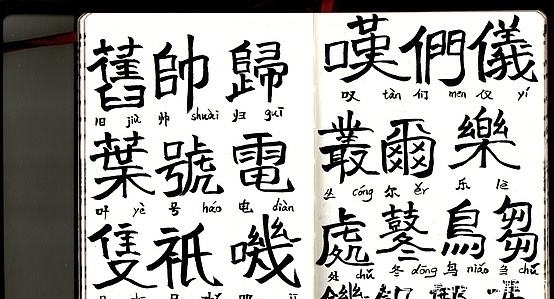 舊 帥 歸
旧 jiù 帅 shuài 归 guī
葉 號 電
叶 yè 号 háo 电 diàn
隻 祇 嘰
嘆 們 儀
叹 tàn 们 men 仪 yí
叢 爾 樂
丛 cóng 尔 ěr 乐 lè
處 鼕 鳥 芻
处 chǔ 冬 dōng 鸟 niǎo 刍 chú